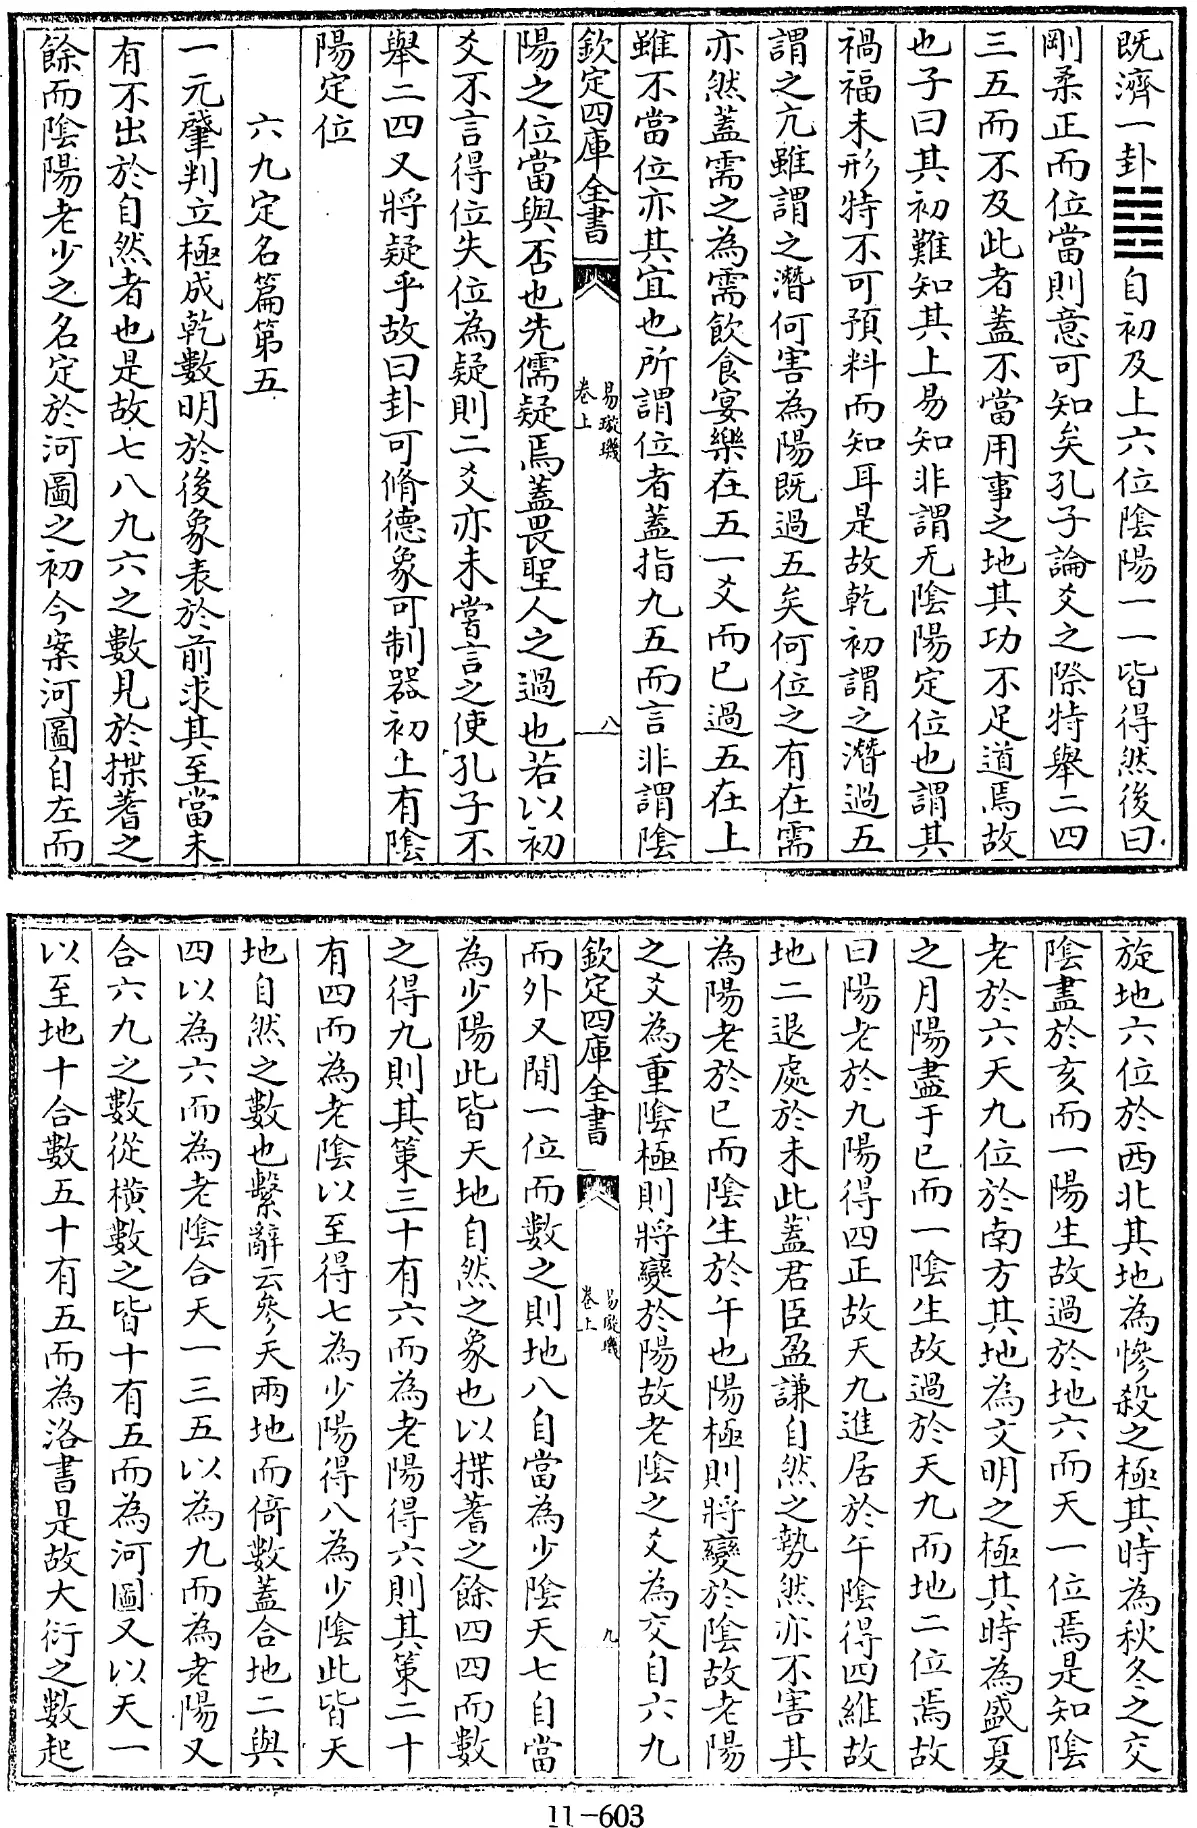 既濟一卦䷾自初及上六位陰陽一一皆得然後曰
剛柔正而位當則意可知矣孔子論爻之際特舉二四
三五而不及此者蓋不當用事之地其功不足道焉故
也子曰其初難知其上易知非謂无陰陽定位也謂其
禍福未形特不可預料而知耳是故乾初謂之潛過五
謂之亢雖謂之潛何害為陽既過五矣何位之有在需
亦然蓋需之為需飲食宴樂在五一爻而已過五在上
雖不當位亦其宜也所謂位者蓋指九五而言非謂陰
欽定四庫全書
易璇璣
卷上
八
陽之位當與否也先儒疑焉蓋畏聖人之過也若以初
爻不言得位失位為疑則二爻亦未嘗言之使孔子不
舉二四又將疑乎故曰卦可脩德象可制器初上有陰
陽定位
六九定名篇第五
一元肇判立極成乾數明於後象表於前求其至當未
有不出於自然者也是故七八九六之數見於揲蓍之
餘而陰陽老少之名定於河圖之初今案河圖自左而
旋地六位於西北其地為慘殺之極其時為秋冬之交
陰盡於亥而一陽生故過於地六而天一位焉是知陰
老於六天九位於南方其地為文明之極其時為盛夏
之月陽盡于巳而一陰生故過於天九而地二位焉故
曰陽老於九陽得四正故天九進居於午陰得四維故
地二退處於未此蓋君臣盈謙自然之勢然亦不害其
為陽老於巳而陰生於午也陽極則將變於陰故老陽
之爻為重陰極則將變於陽故老陰之爻為交自六九
欽定四庫全書
易璇璣
卷上
九
而外又間一位而數之則地八自當為少陰天七自當
為少陽此皆天地自然之象也以揲蓍之餘四四而數
之得九則其策三十有六而為老陽得六則其策二十
有四而為老陰以至得七為少陽得八為少陰此皆天
地自然之數也繫辭云參天兩地而倚數蓋合地二與
四以為六而為老陰合天一三五以為九而為老陽又
合六九之數從橫數之皆十有五而為河圖又以天一
以至地十合數五十有五而為洛書是故大衍之數起
11-603